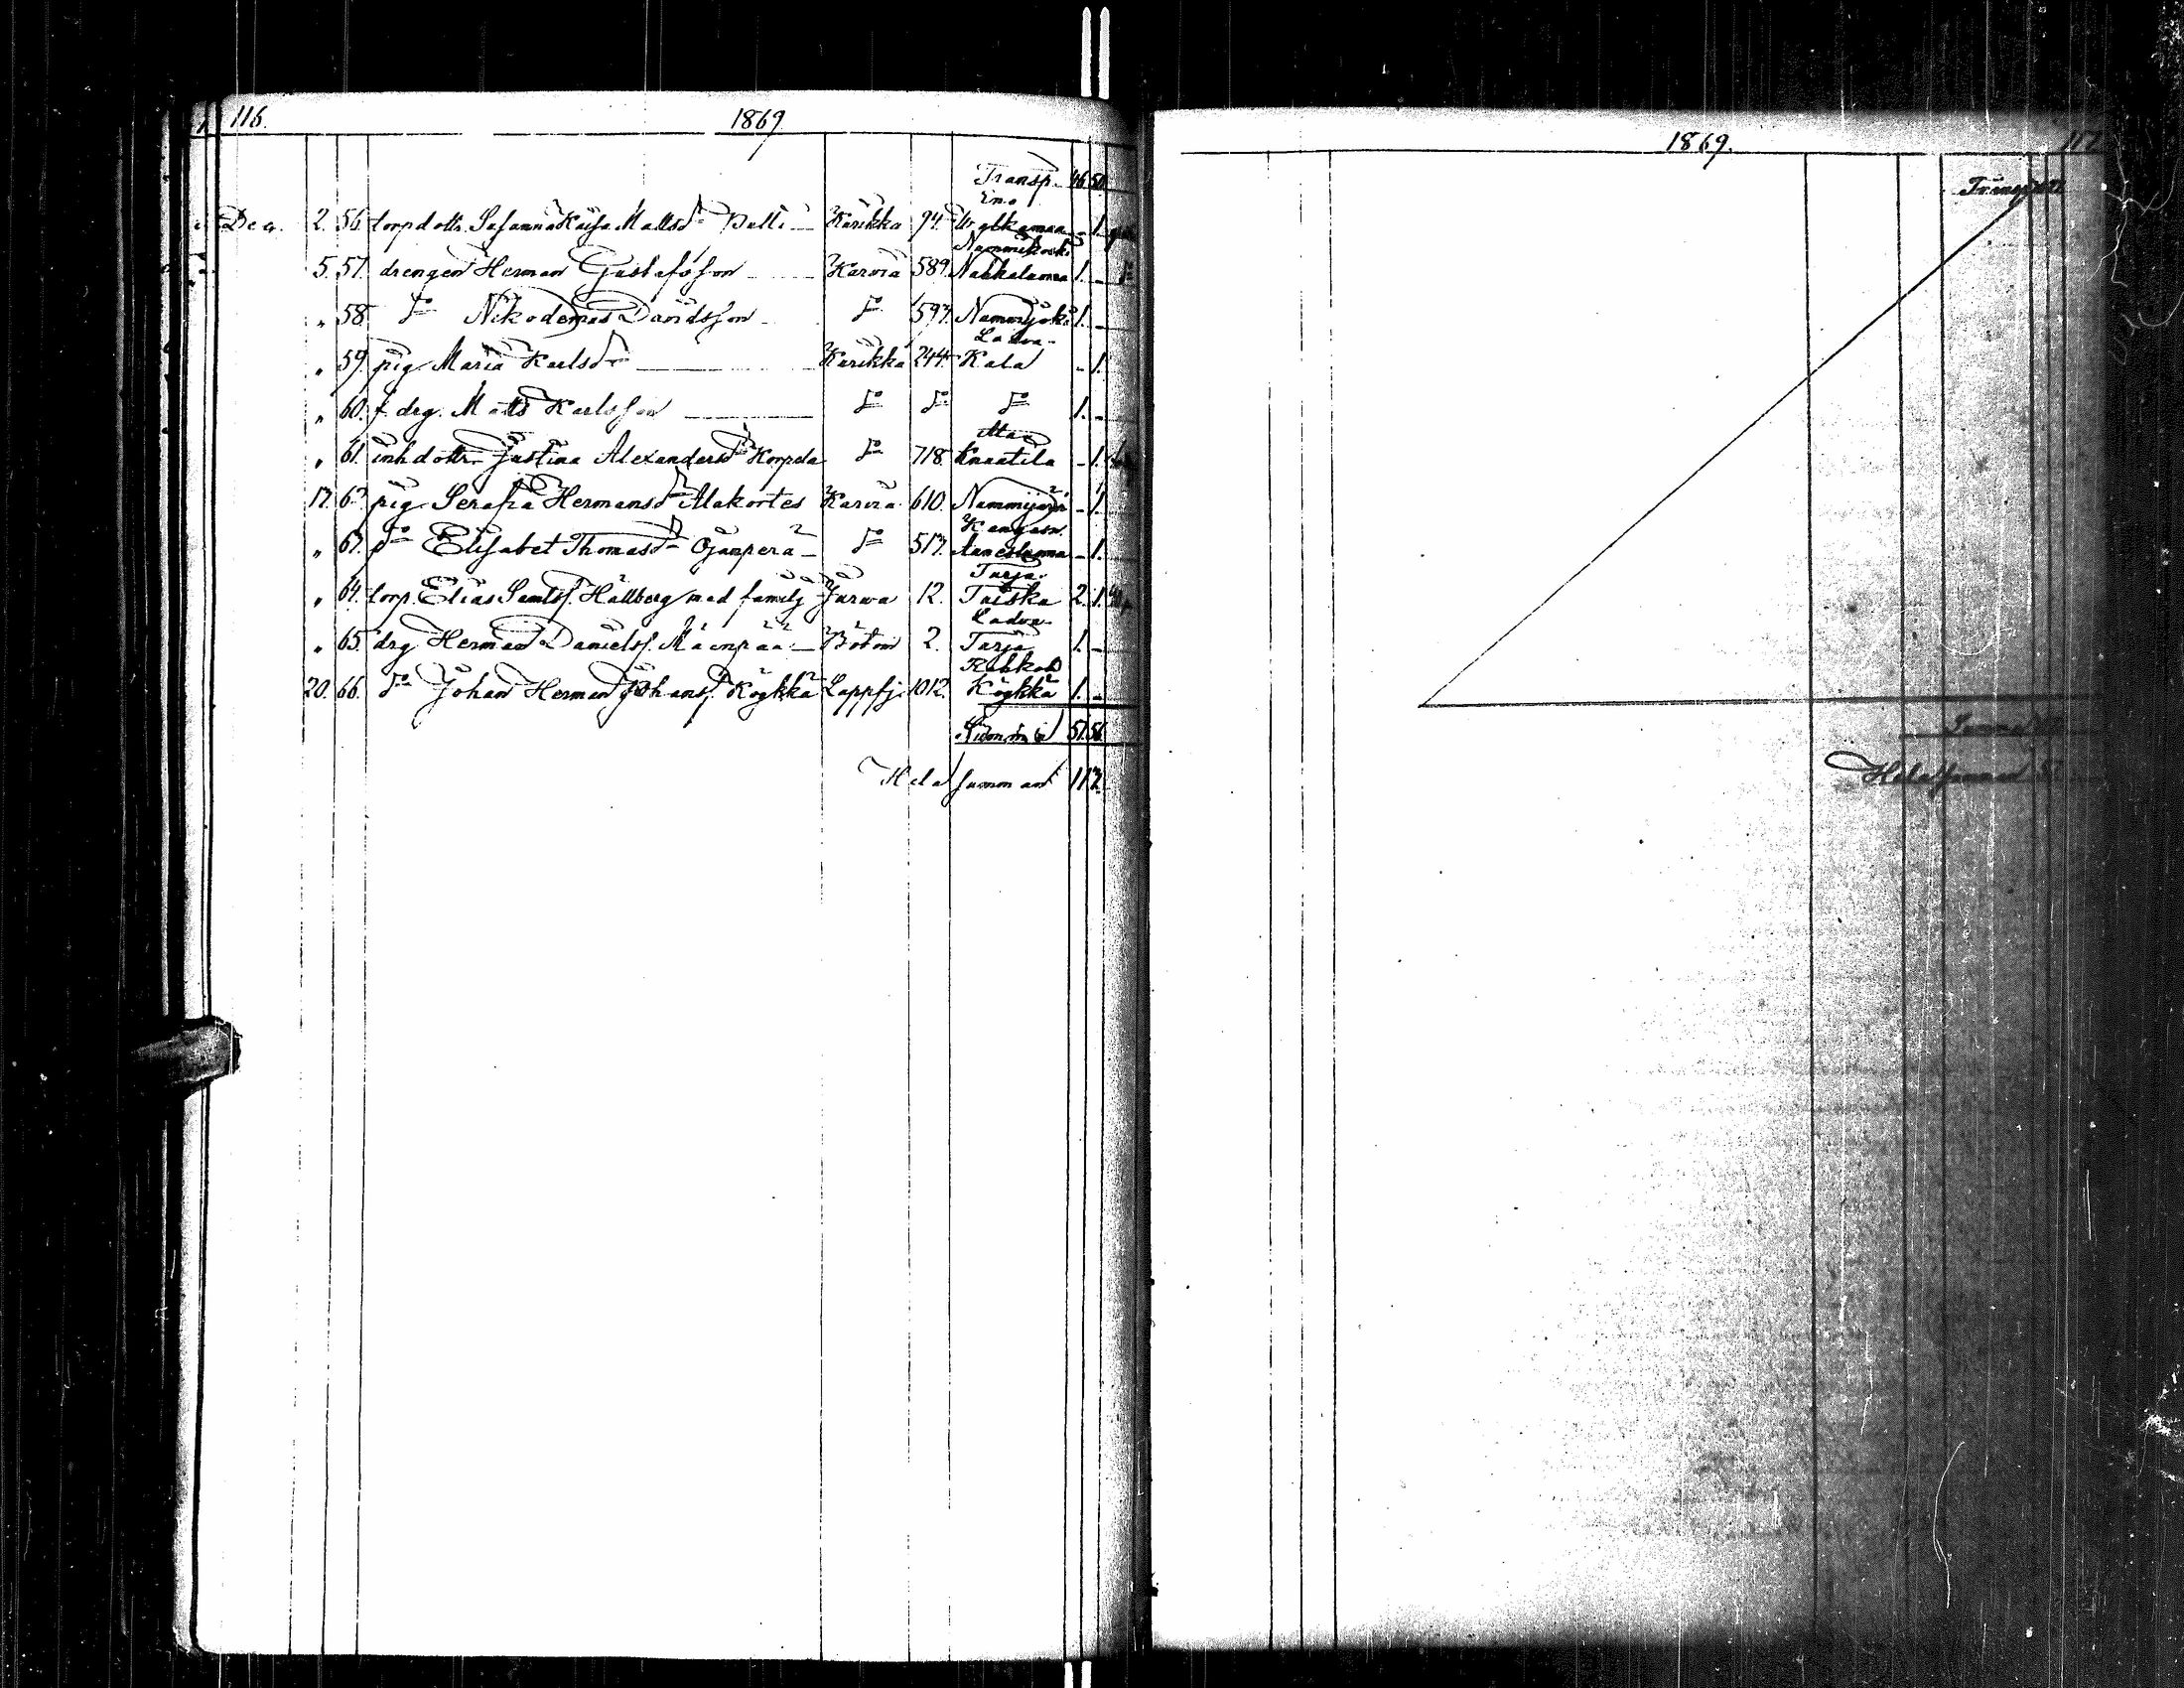 116. 1869
Transp. 46 50
Dec. 2. 56. torpdottr. Susanna Kaisa Mattsdr Kärikka 94. 1.
Nummikoski
5. 57. drengen Herman Gustafsson Karvia 589. Nahkaluoma 1. -
" 58. do Nikodemus Davidsson do 597. Nummijoki 1. -
Ladva
" 59. pig. Maria Karlsdr Kärikka 244. Kala - 1.
" 60. f. drg. Matts Karlsson do do do 1. -
" 61. inh.dottr. Justina Alexandersdr Korpela do 718. Knaatila - 1.
17. 62. pig. Serafia Hermansdr Alakortes Karvia 610. Nummijärvi - 1.
" 63. do Elisabet Thomasdr Ojanperä do 517. - 1.
Tarja
" 64. torp. Elias Samlss. Hällberg med familj Jurva 12. Tuiska 2. 1.
Ladva
" 65. drg Herman Danielss. Mäenpää Bötom 2. Tarja 1. -
20. 66. do Johan Herman Johanss. Kögkkä Lappfj. 1012. Kögkkä 1. -
Summa 51. 56.
Hela summan 117.
1869. 117
Transp.
Summa
Hela summan